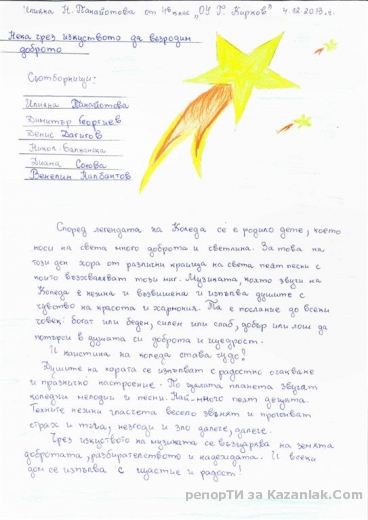 Илияна Н. Панайотова от 4б клас „ОУ Г. Кирков" 4.12.2013 г.
Нека чрез изкуството да възродим
доброто
Съотборници:
Илияна Панайотова
Димитър Георгиев
Венис Дагигов
Никол
Диана Союва
Венелин Налбантов
Според легендата на Коледа се е родило дете, което
носи на света много доброта и светлина. Затова на
този ден хора от различни краища на света пеят песни с
които възхваляват този миг. Музиката, която звучи на
Коледа е нежна и възвишена и изпълва душите с
чувство на красота и хармония. Тя е послание до всеки
човек: богат или беден, силен или слаб, добър или лош да
потърси в душата си доброта и щедрост.
И наистина на коледа става чудо?
Душите на хората се изпълват с радостно очакване
и празнично настроение. По цялата планета звучат
коледни мелодии и песни. Най-много пеят децата.
Техните нежни гласчета весело звънят и прогонват
страх и тъга, несгоди и зло далече, далече.
Чрез изкуството на музиката се възцарява на земята
добротата, разбирателството и надеждата. И всеки
дом се изпълва с щастие и радост!
репорТИ за Kazanlak.Com